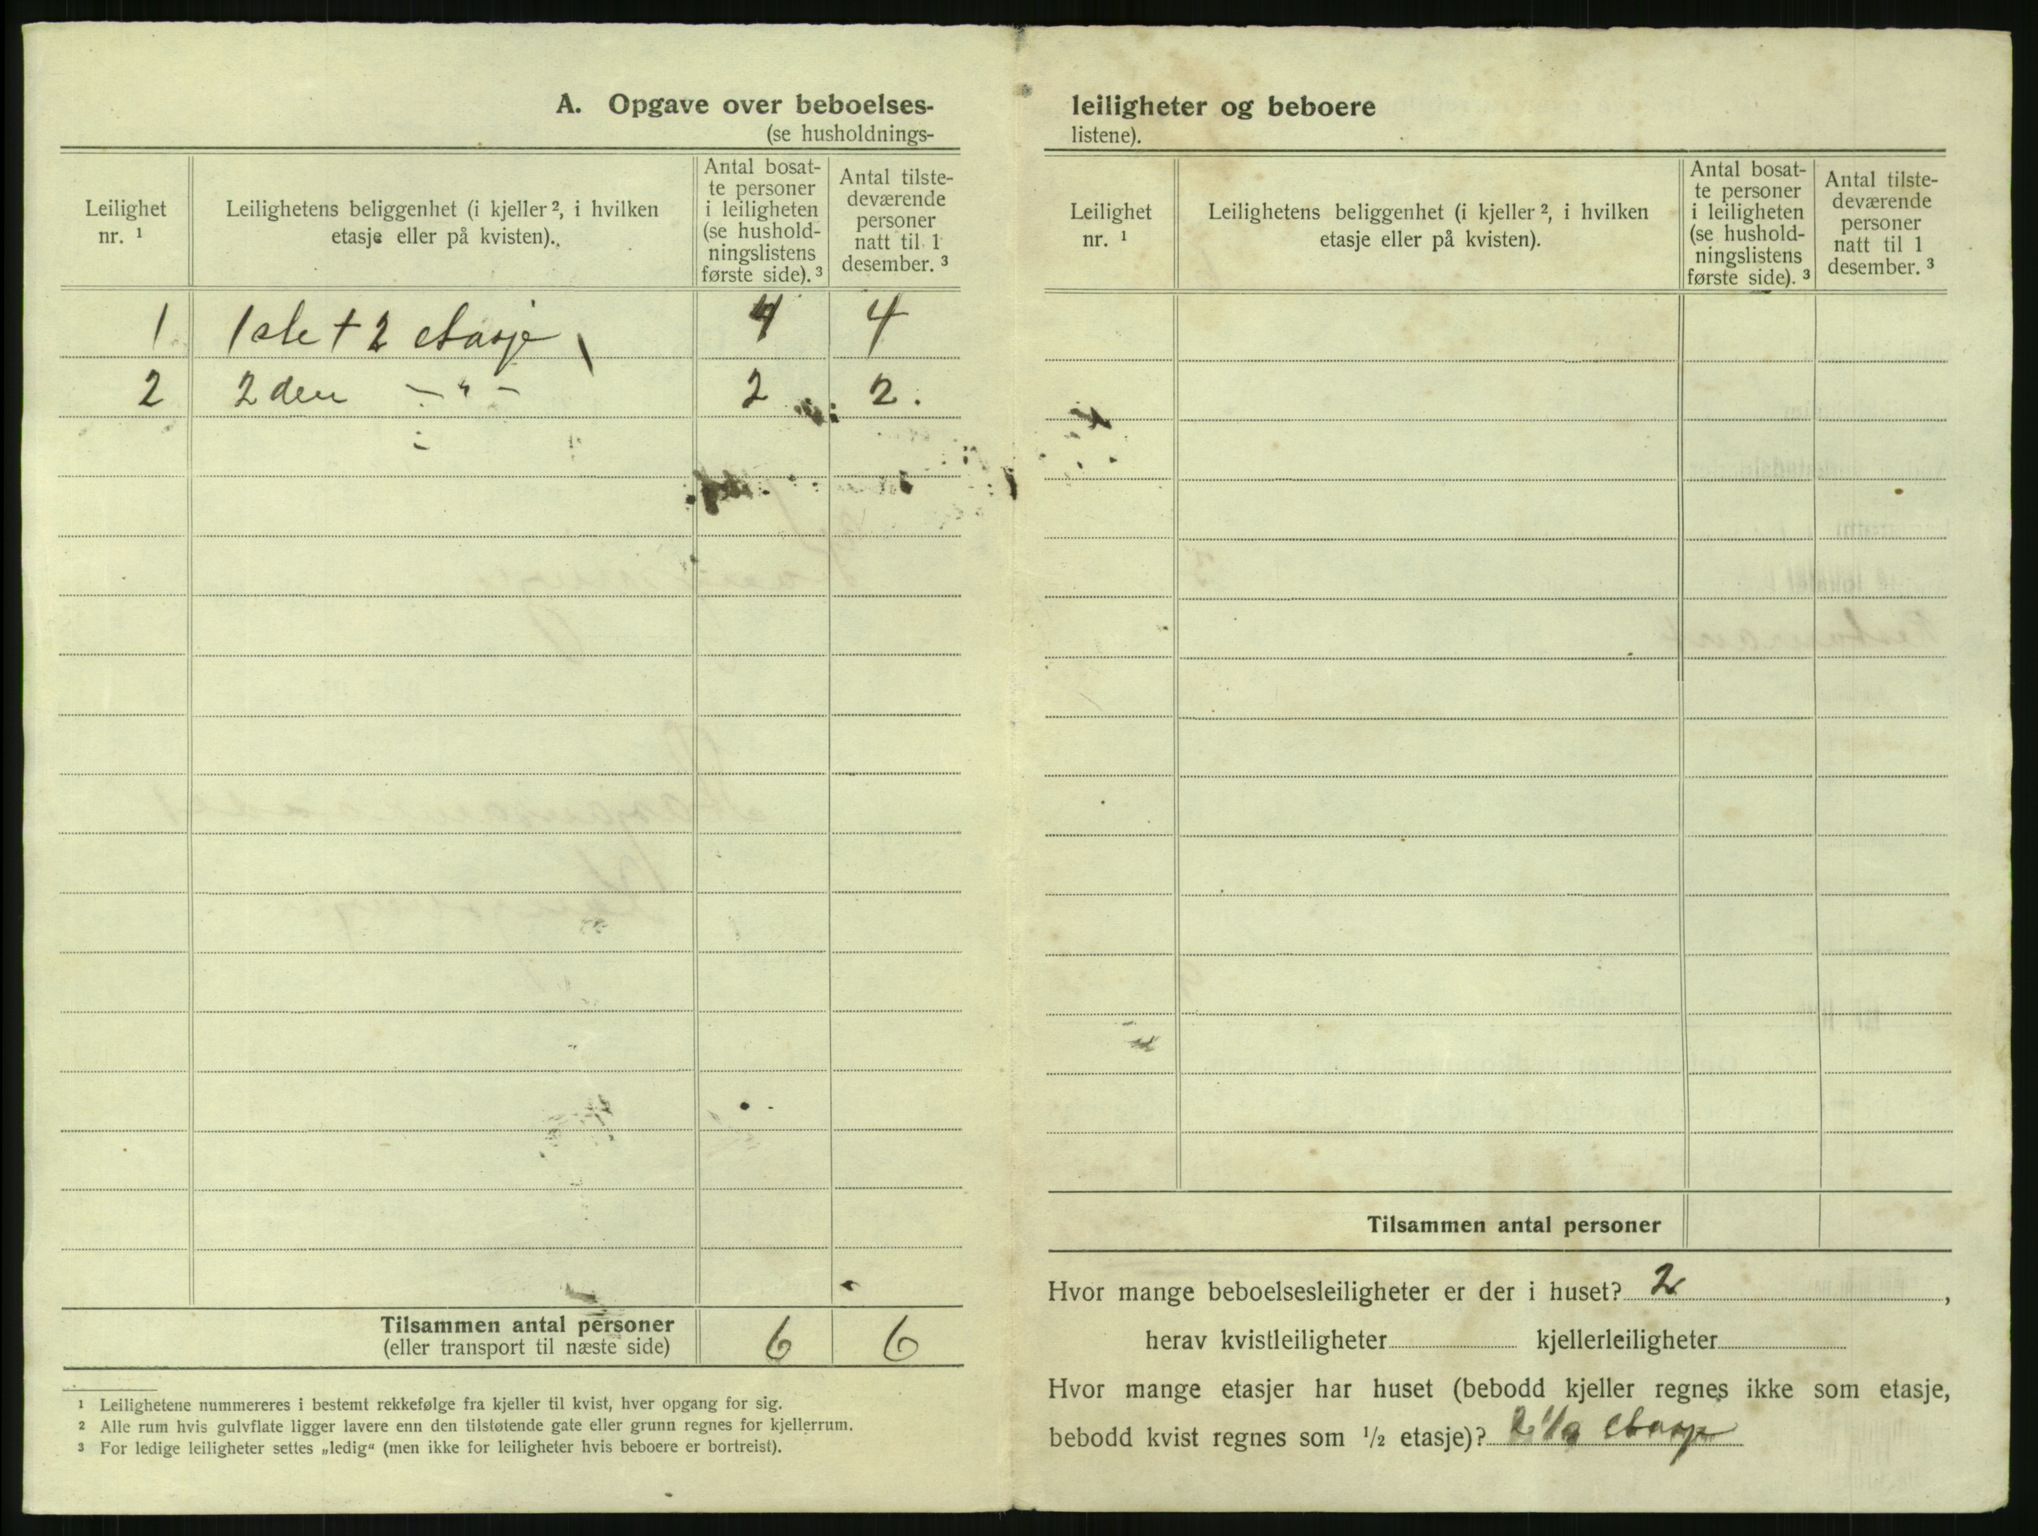 A. Opgave over beboelses-
(se husholdnings-
Leilighet nr. ¹
Leilighetens beliggenhet (i kjeller ², i hvilken etasje eller på kvisten).
Antal bosat-
te personer
i leiligheten
(se hushold-
ningslistens
første side). ³
Antal tilste-
deværende
personer
natt til 1
desember. ³
1 1ste + 2 etasje 4 4
2 2den — " — 2 2.
Tilsammen antal personer 6 6
(eller transport til næste side)
¹ Leilighetene nummereres i bestemt rekkefølge fra kjeller til kvist, hver opgang for sig.
² Alle rum hvis gulvflate ligger lavere enn den tilstøtende gate eller grunn regnes for kjellerrum.
³ For ledige leiligheter settes „ledig“ (men ikke for leiligheter hvis beboere er bortreist).
leiligheter og beboere
listene).
Leilighet nr. ¹
Leilighetens beliggenhet (i kjeller ², i hvilken etasje eller på kvisten).
Antal bosat-
te personer
i leiligheten
(se hushold-
ningslistens
første side). ³
Antal tilste-
deværende
personer
natt til 1
desember. ³
Tilsammen antal personer
Hvor mange beboelsesleiligheter er der i huset? 2,
herav kvistleiligheter kjellerleiligheter
Hvor mange etasjer har huset (bebodd kjeller regnes ikke som etasje,
bebodd kvist regnes som ½ etasje)? 2 ½ etasje